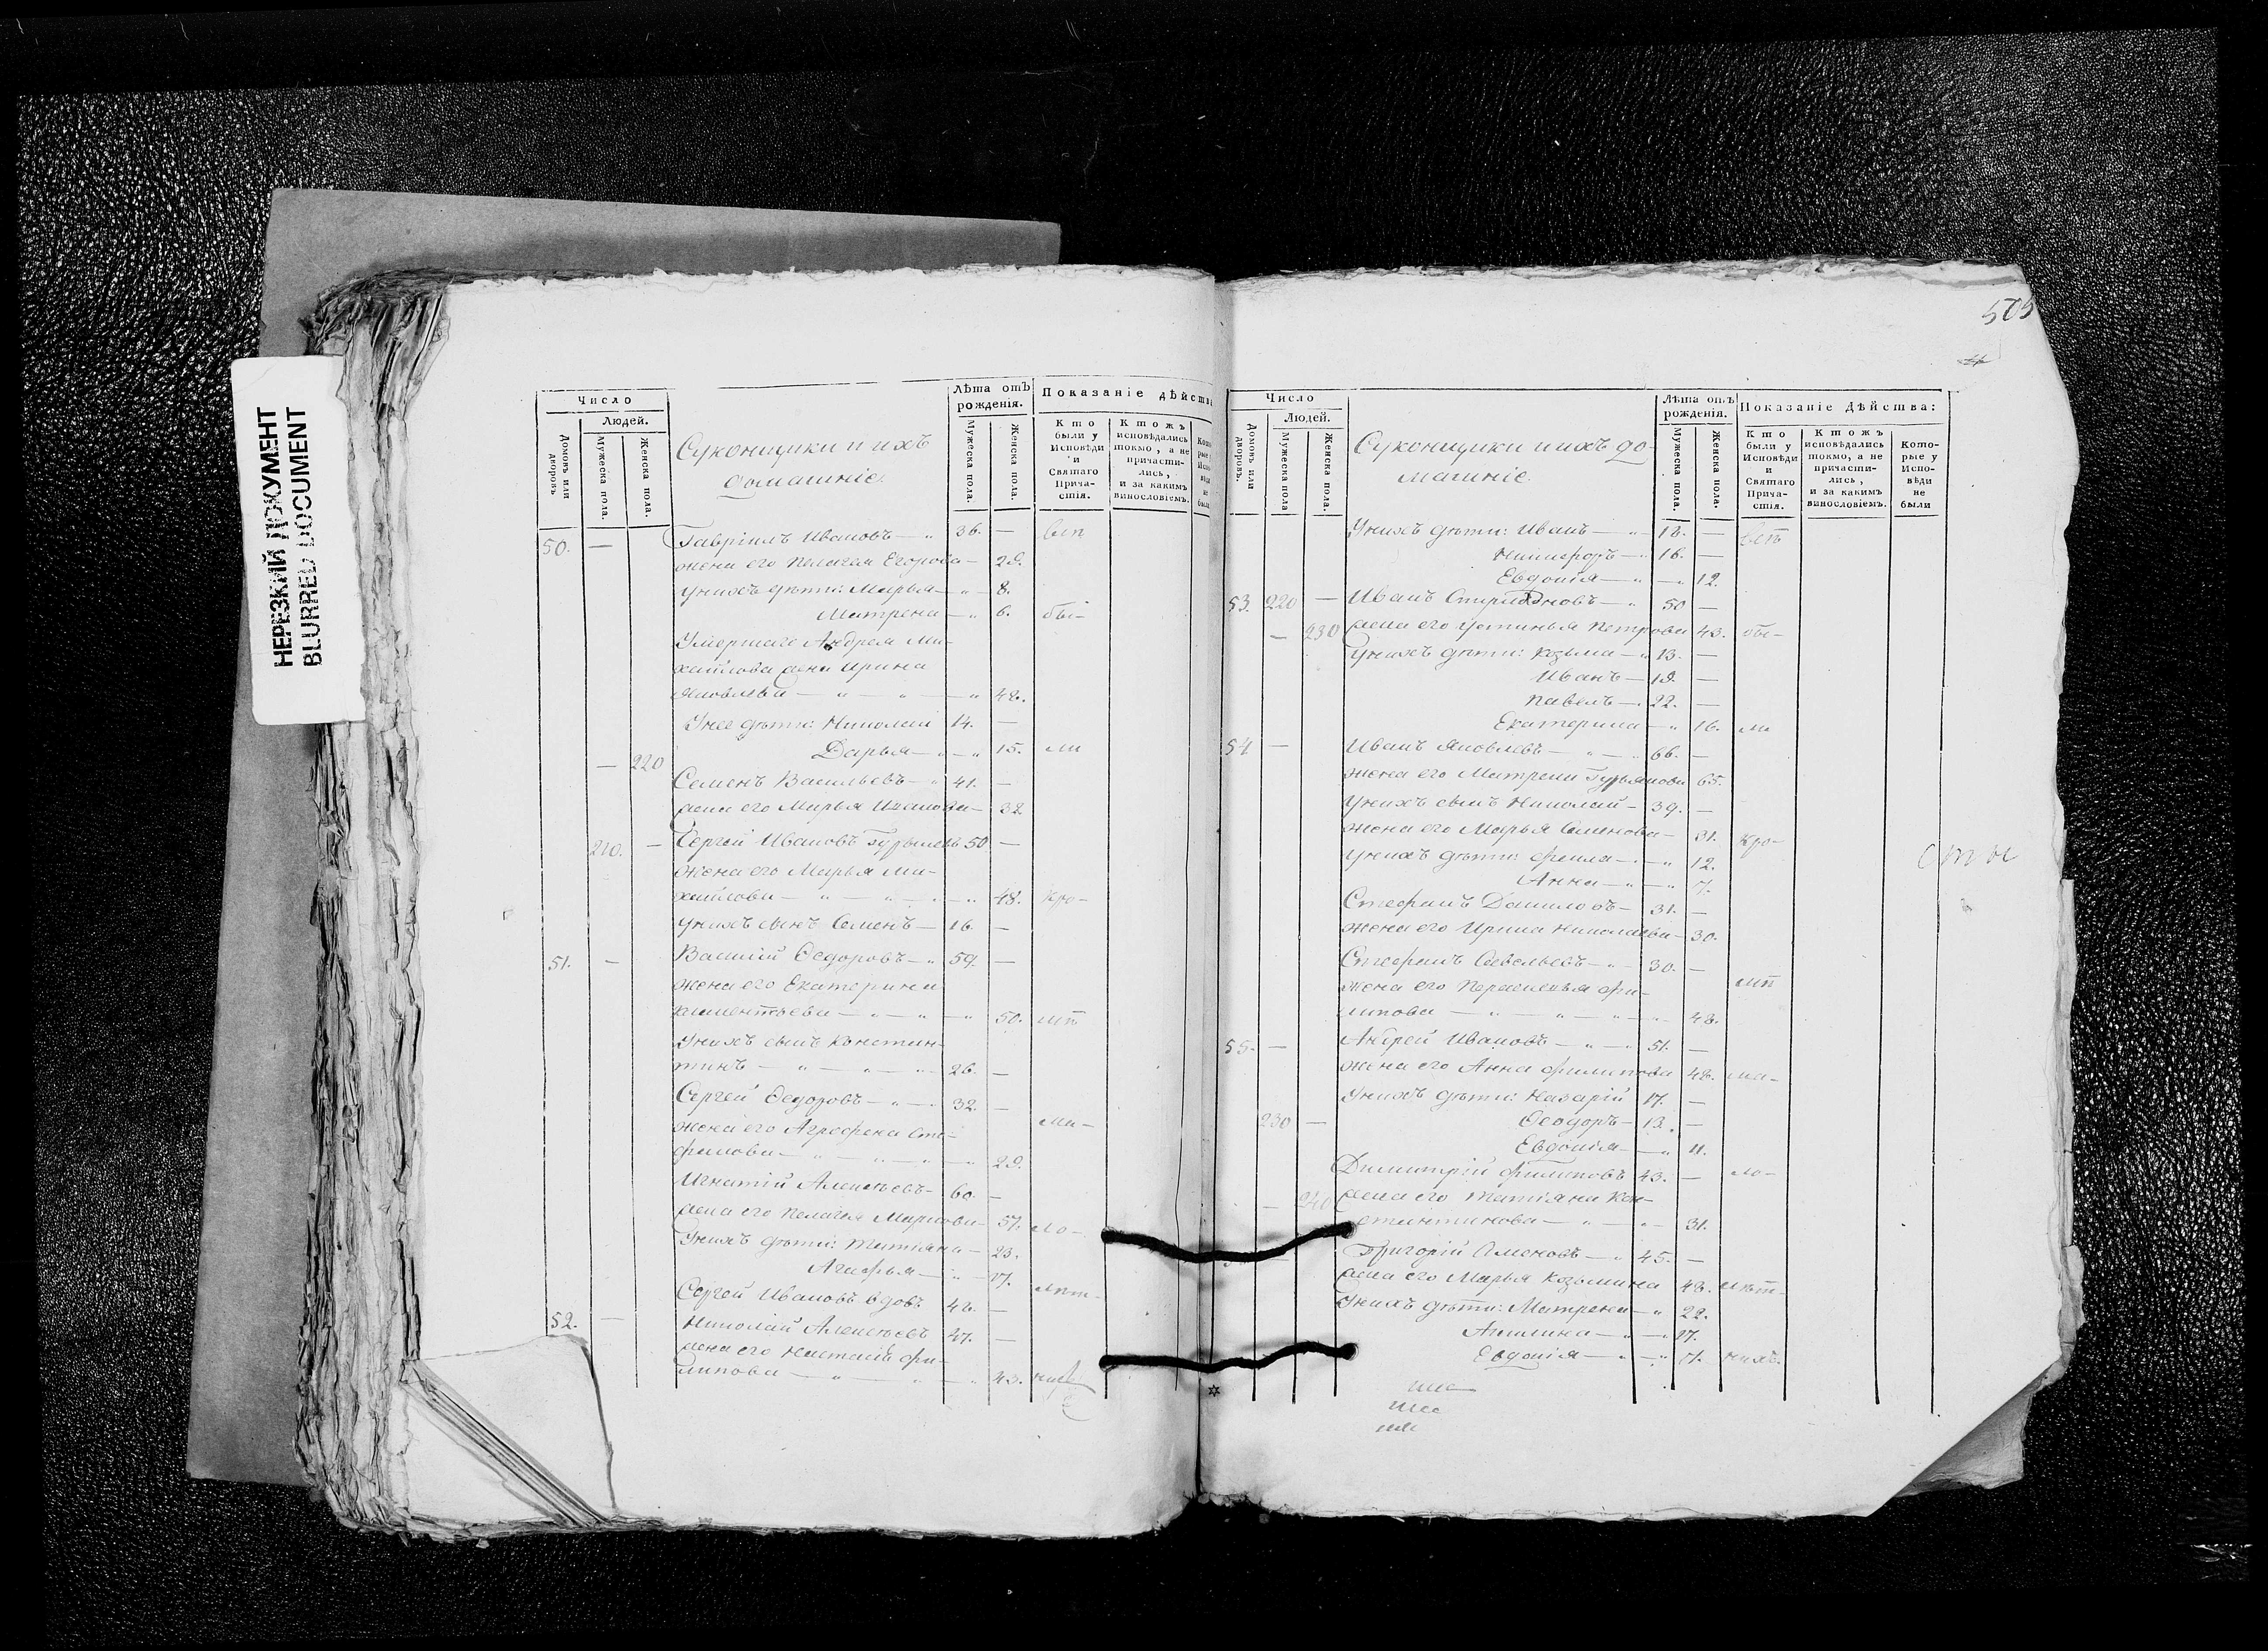 НЕРЕЗКИЙ ДОКУМЕНТ
BLURRED DOCUMENT
Число
Людей.
Домовъ или дворовъ.
Мужеска пола.
Женска пола.
Суконщики и ихъ
домашніе.
Лѣта отъ рожденія.
Мужеска пола.
Женска пола.
Показаніе дѣйства
Кто были у Исповѣди и Святаго Прича-стія.
Ктожъ исповѣдались токмо, а не причасти-лись, и за какимъ винословіемъ.
50. — Гавріилъ Ивановъ — 36. —
жена его Пелагея Егорова — 29.
У нихъ дѣти: Марья — 8.
Матрена — 6. бы-
Умершаго Андрея Ми-
хайлова жена Ирина
Яковлева — 48.
У нее дѣти: Николай 14. —
— 220 Дарья — 15.
Семенъ Васильевъ — 41. —
жена его Марья Иванова — 32
210. — Сергей Ивановъ 50 —
жена его Марья Ми-
хайлова — 48.
У нихъ сынъ Семенъ — 16. —
51. — Василій Ѳедоровъ — 59. —
жена его Екатерина
Климентьева — 50.
У нихъ сынъ Констан-
тинъ — 26. —
Сергей Ѳедоровъ — 32. —
жена его Агрефена Сте-
фанова — 29.
Игнатій Алексѣевъ — 60. —
жена его Пелагея Маркова — 57. ло-
У нихъ дѣти: Татіяна — 23.
Агафья — 17.
Сергей Ивановъ вдовъ 48. —
52. — Николай Алексѣевъ 47. —
жена его Настасія Фи-
липова — 43.
505
Число
Людей.
Домовъ или дворовъ.
Мужеска пола
Женска пола.
Суконщики и ихъ до-
машніе.
Лѣта отъ рожденія.
Мужеска пола.
Женска пола.
Показаніе Дѣйства:
Кто были у Исповѣди и Святаго Прича-стія.
Ктожъ исповѣдались токмо, а не причасти-лись, и за какимъ винословіемъ.
Кото-рые у Испо-вѣди не были
У нихъ дѣти: Иванъ — 18. —
Никифоръ — 16. —
Евдокія — 12.
53. 220 — Иванъ Спиридоновъ — 50 —
— 230 жена его Устинья Петрова 43. бы-
У нихъ дѣти: Козьма — 13. —
Иванъ — 19. —
Павелъ — 22. —
Екатерина — 16.
54. — Иванъ Яковлевъ — 66. —
жена его Матрена Гурьянова 65.
У нихъ сынъ Николай — 39. —
жена его Марья Семенова — 31.
У нихъ дѣти: Фекла — 12.
Анна — 7.
Стефанъ Даниловъ — 31. —
жена его Ирина Николаева — 30.
Стефанъ Савельевъ — 30. —
жена его Парасковья Фи-
липова — 48.
55. — Андрей Ивановъ — 51. —
жена его Анна Филипова 48.
У нихъ дѣти: Назарій 17. —
230 — Ѳеодоръ — 13. —
Евдокія — 11.
Димитрій Филиповъ 43. — ло-
— 240 жена его Татіяна Кон-
стантинова — 31.
Григорій Семеновъ — 45. —
жена его Марья Козьмина 48.
У нихъ дѣти: Матрена — 22.
Акилина — 17.
Евдокія — 7.